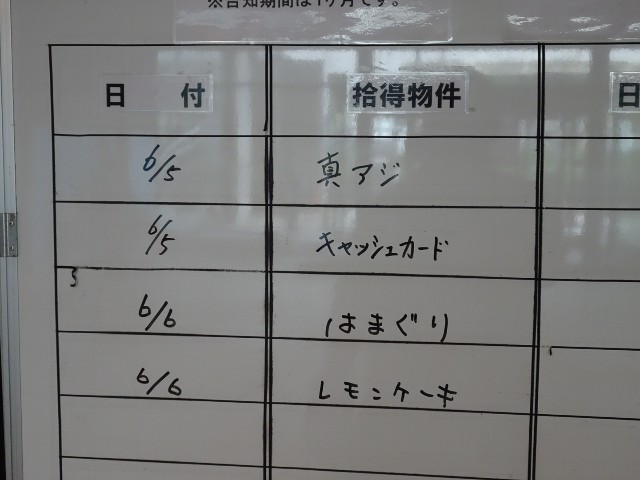 ※告知期間は1ヶ月です。
日 付 拾得物件 日
6/5 真アジ
6/5 キャッシュカード
6/6 はまぐり
6/6 レモンケーキ